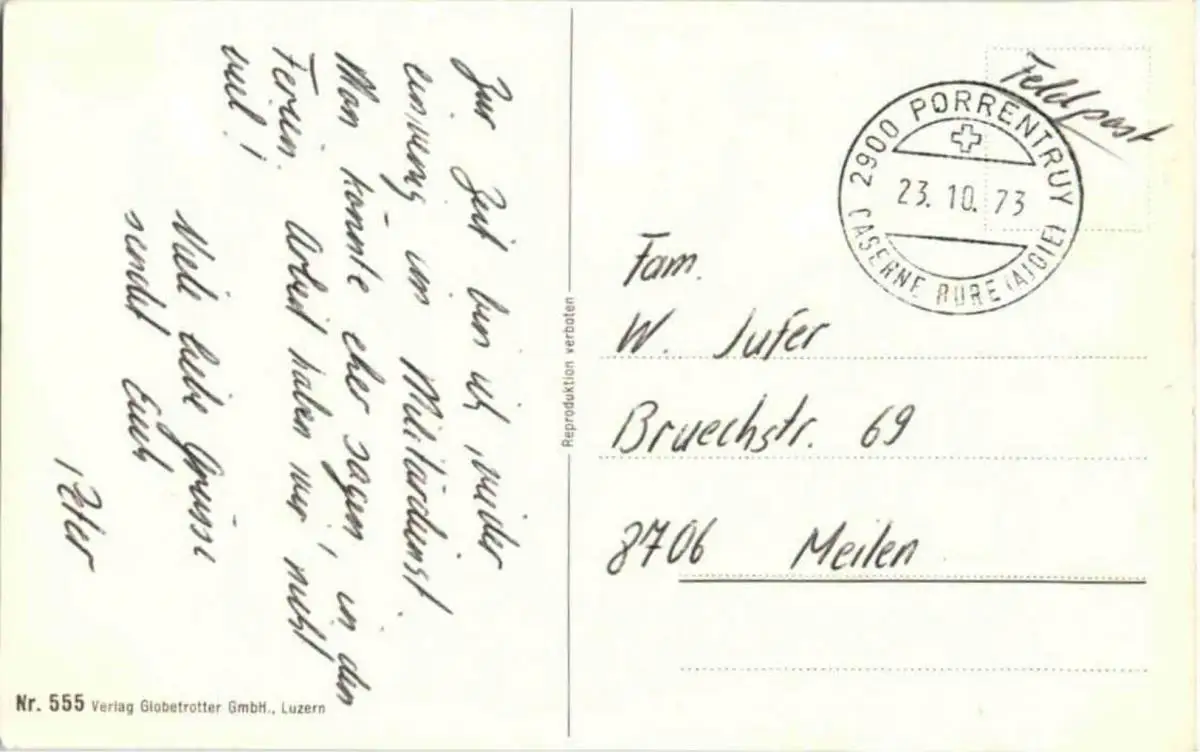 Zur Zeit bin ich wieder
einwenig im Militärdienst.
Man könnte eher sagen, in den
Ferien. Arbeit haben wir nicht
viel!
Viele liebe Grüsse
sendet Euch
Peter
Nr. 555 Verlag Globetrotter GmbH., Luzern
Reproduktion verboten
Feldpost
2900 PORRENTRUY
23.10.73
CASERNE BURE (AJOIE)
Fam.
W. Jufer
Bruechstr. 69
8706 Meilen